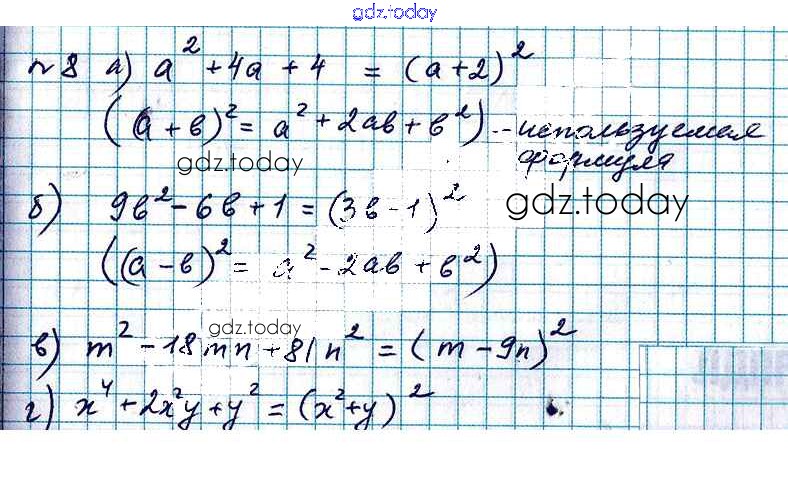 gdz.today
№8 а) a² + 4a + 4 = (a+2)²
((a + в)² = a² + 2aв + в²) - используемая
формула
gdz.today
б) 9в² - 6в + 1 = (3в - 1)² gdz.today
((a - в)² = a² - 2aв + в²)
gdz.today
в) m² - 18mn + 81n² = (m - 9n)²
г) x⁴ + 2x²y + y² = (x² + y)²